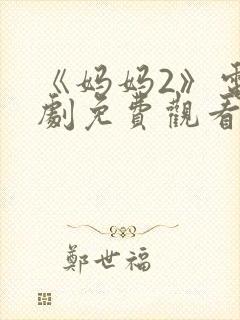 《妈妈2》電
劇免費觀看
鄭世福